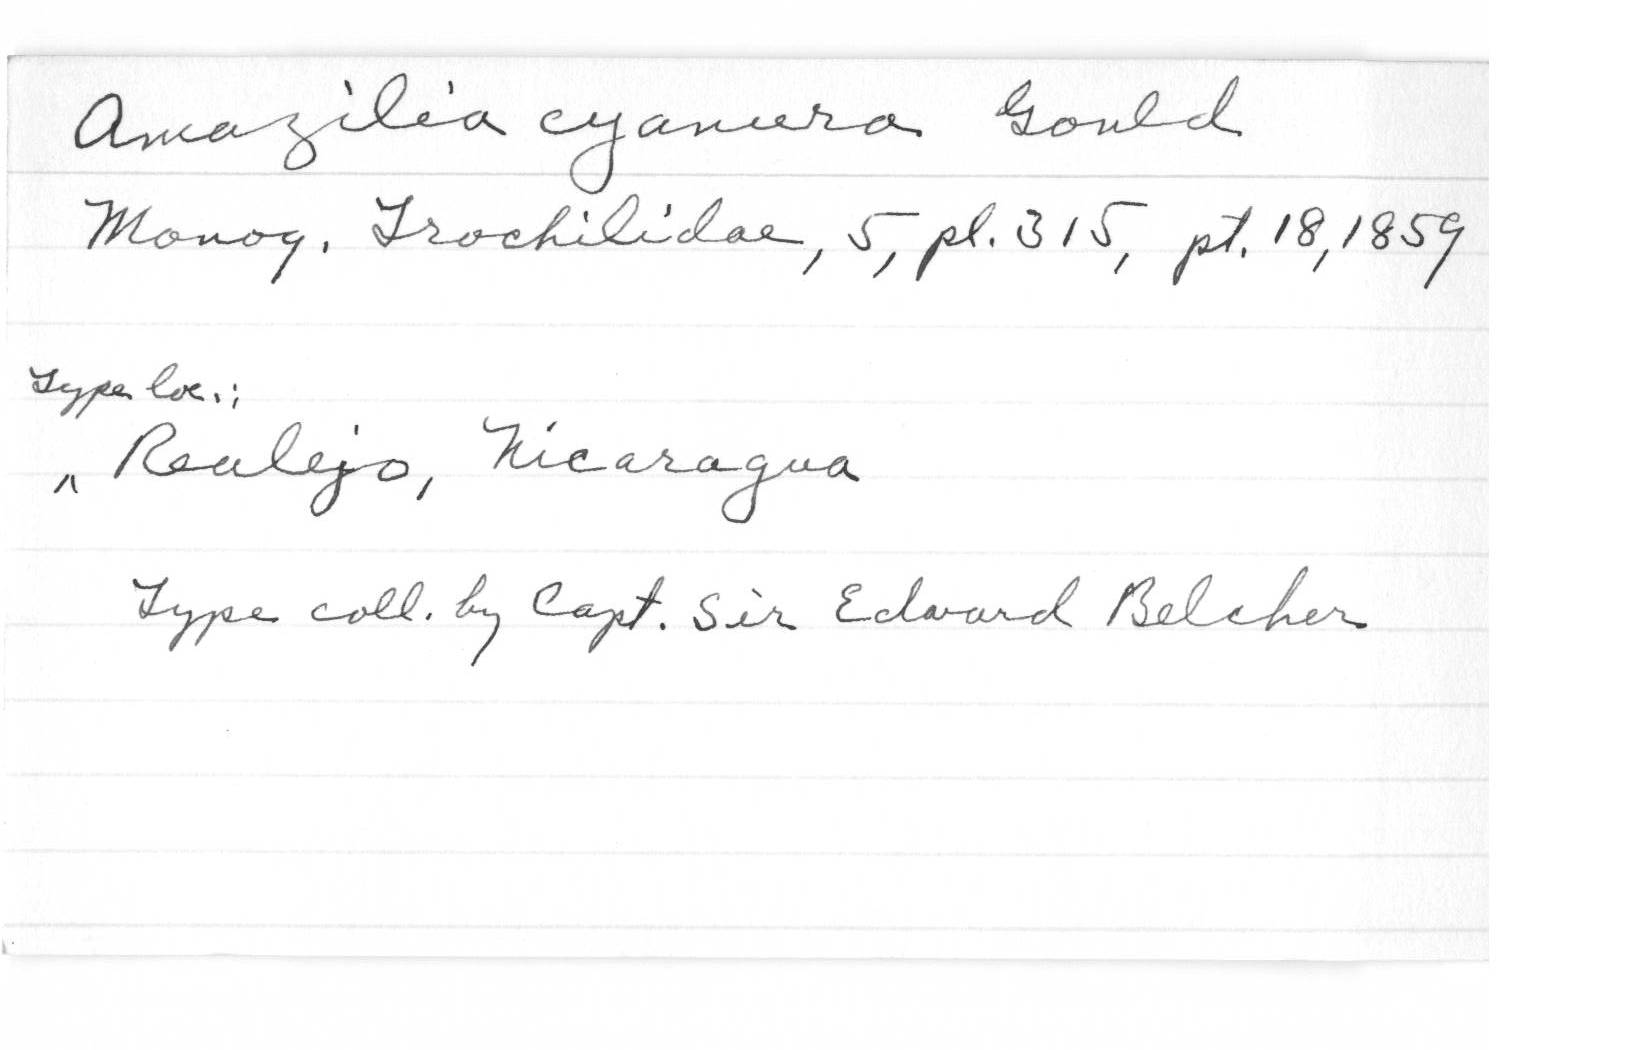 Amazilia cyanura Gould
Monog. Trochilidae, 5, pl. 315, pt. 18, 1859
Type loc.:
^ Realejo, Nicaragua
Type coll. by Capt. Sir Edward Belcher